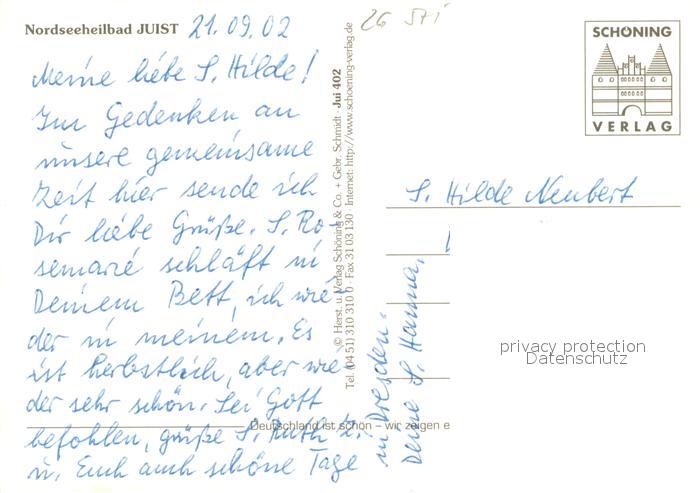 Nordseeheilbad JUIST 21.09.02
Meine liebe S. Hilde!
Im Gedenken an
unsere gemeinsame
Zeit hier sende ich
Dir liebe Grüße. S. Ro-
semarie schläft in
Deinem Bett, ich wie-
der in meinem. Es
ist herbstlich, aber wie-
der sehr schön. Sei Gott
befohlen, grüße S. Ruth
u. Euch auch schöne Tage
in Dresden.
Deine S. Hanna.
© Herst. u. Verlag Schöning & Co. + Gebr. Schmidt · Jui 402
Tel. (04 51) 310 310 0 · Fax 31 03 130 · Internet: http://www.schoening-verlag.de
Deutschland ist schön – wir zeigen e
SCHÖNING
VERLAG
S. Hilde Neubert
privacy protection
Datenschutz